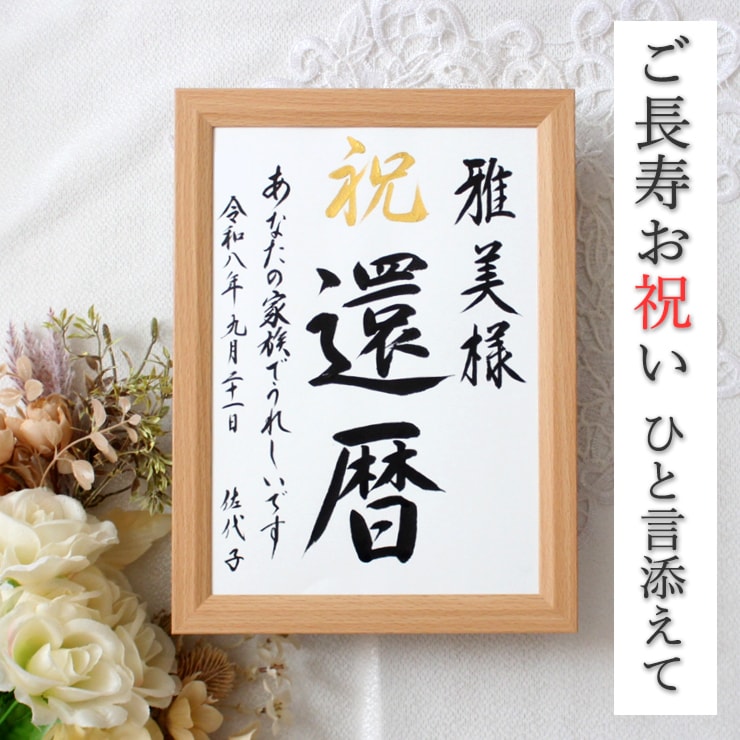 ご長寿お祝い ひと言添えて
雅美様
祝
還暦
あなたの家族でうれしいです
令和八年 九月二十一日
佐代子